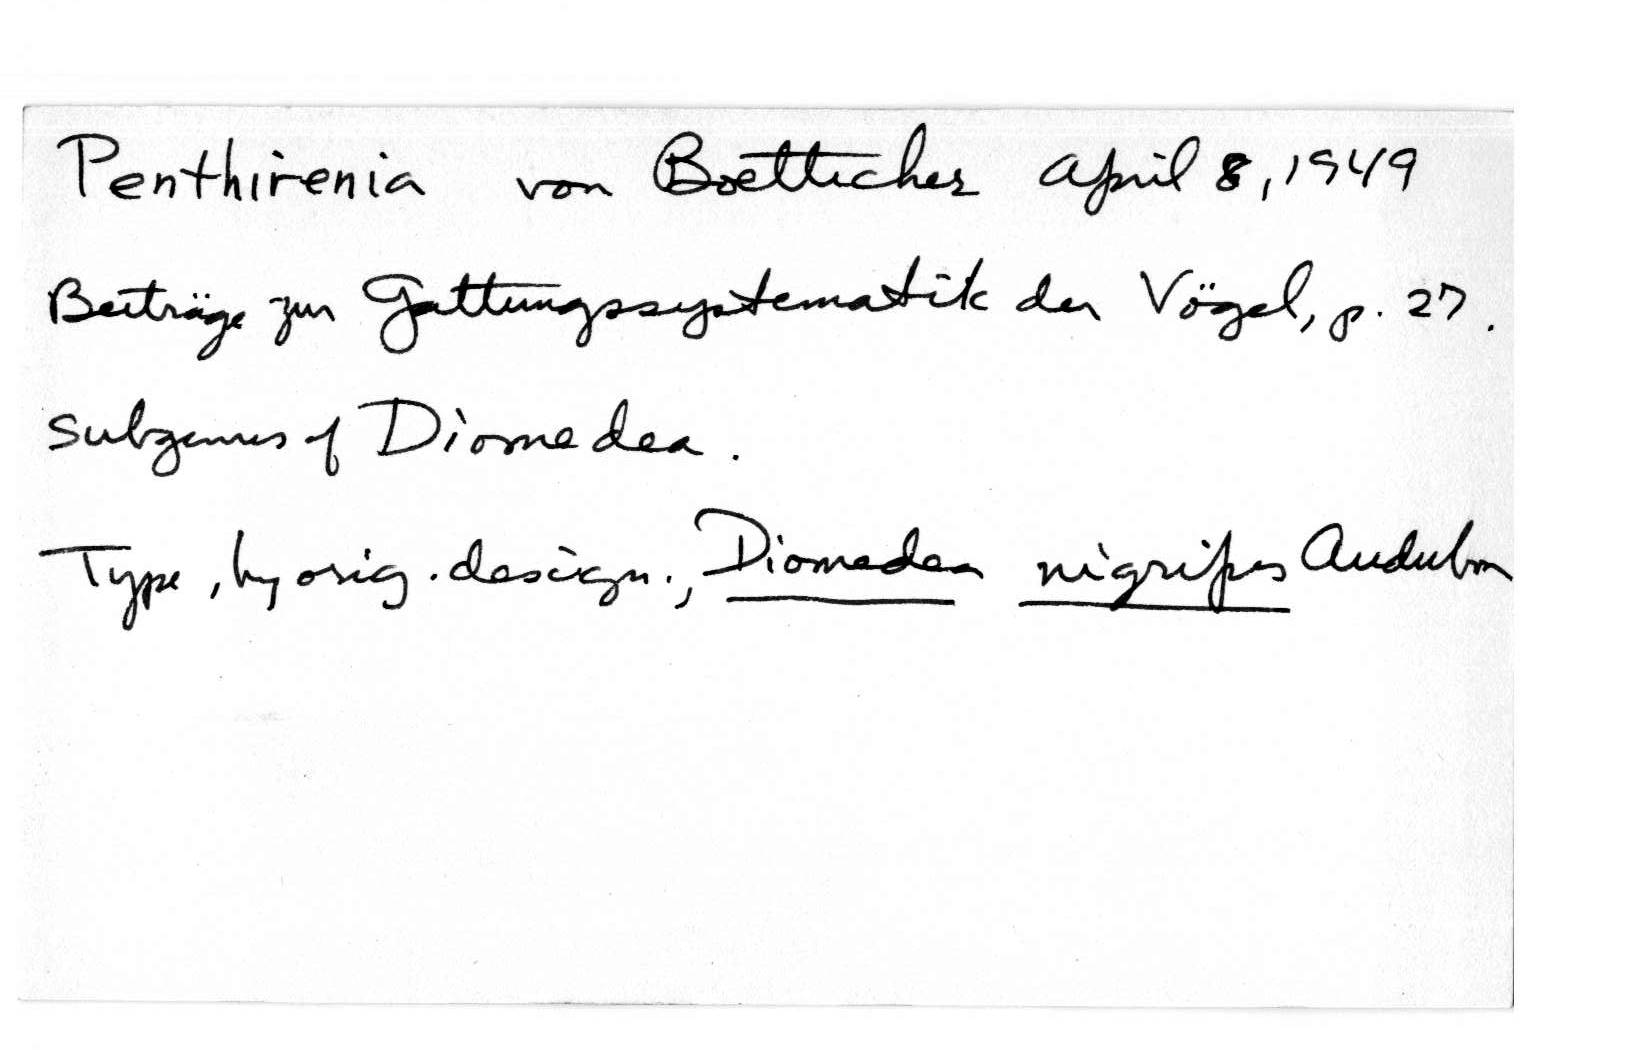 Penthirenia von Boetticher April 8, 1949
Beiträge zur Gattungssystematik der Vögel, p. 27.
subgenus of Diomedea.
Type, by orig. design., Diomedea nigripes Audubon